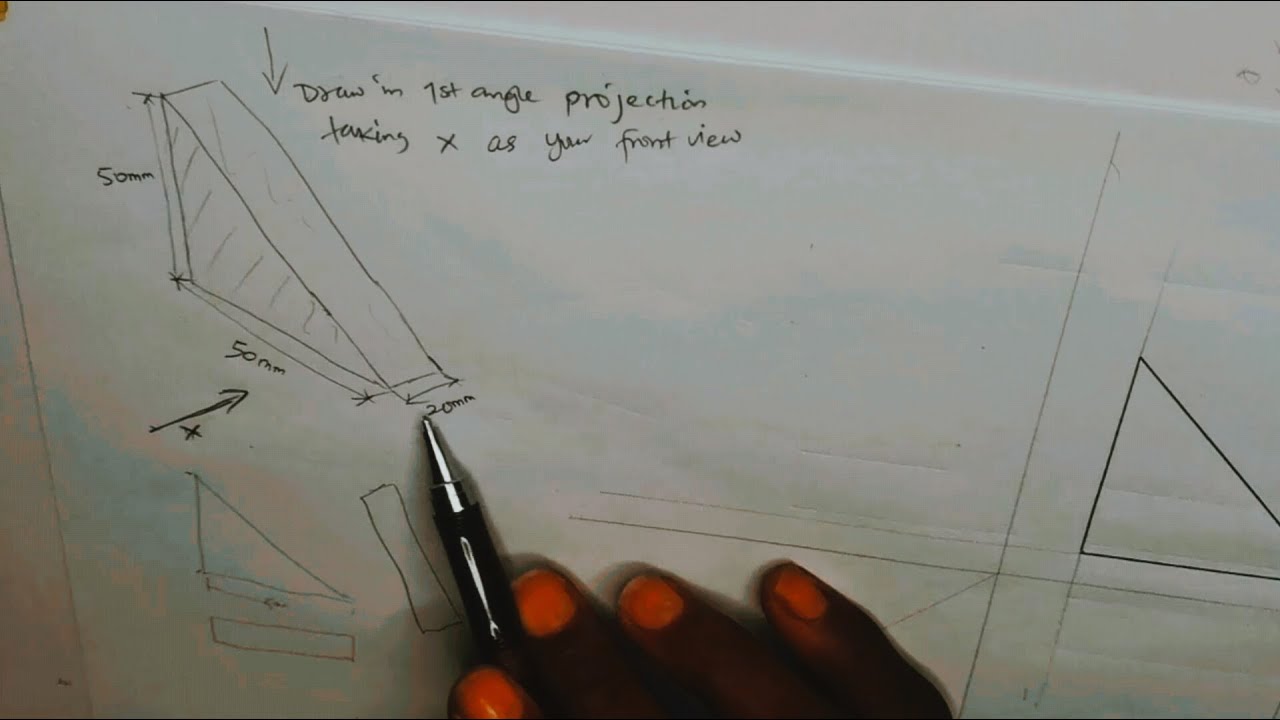 Draw in 1st angle projection
taking x as your front view
50mm
50mm
20mm
x